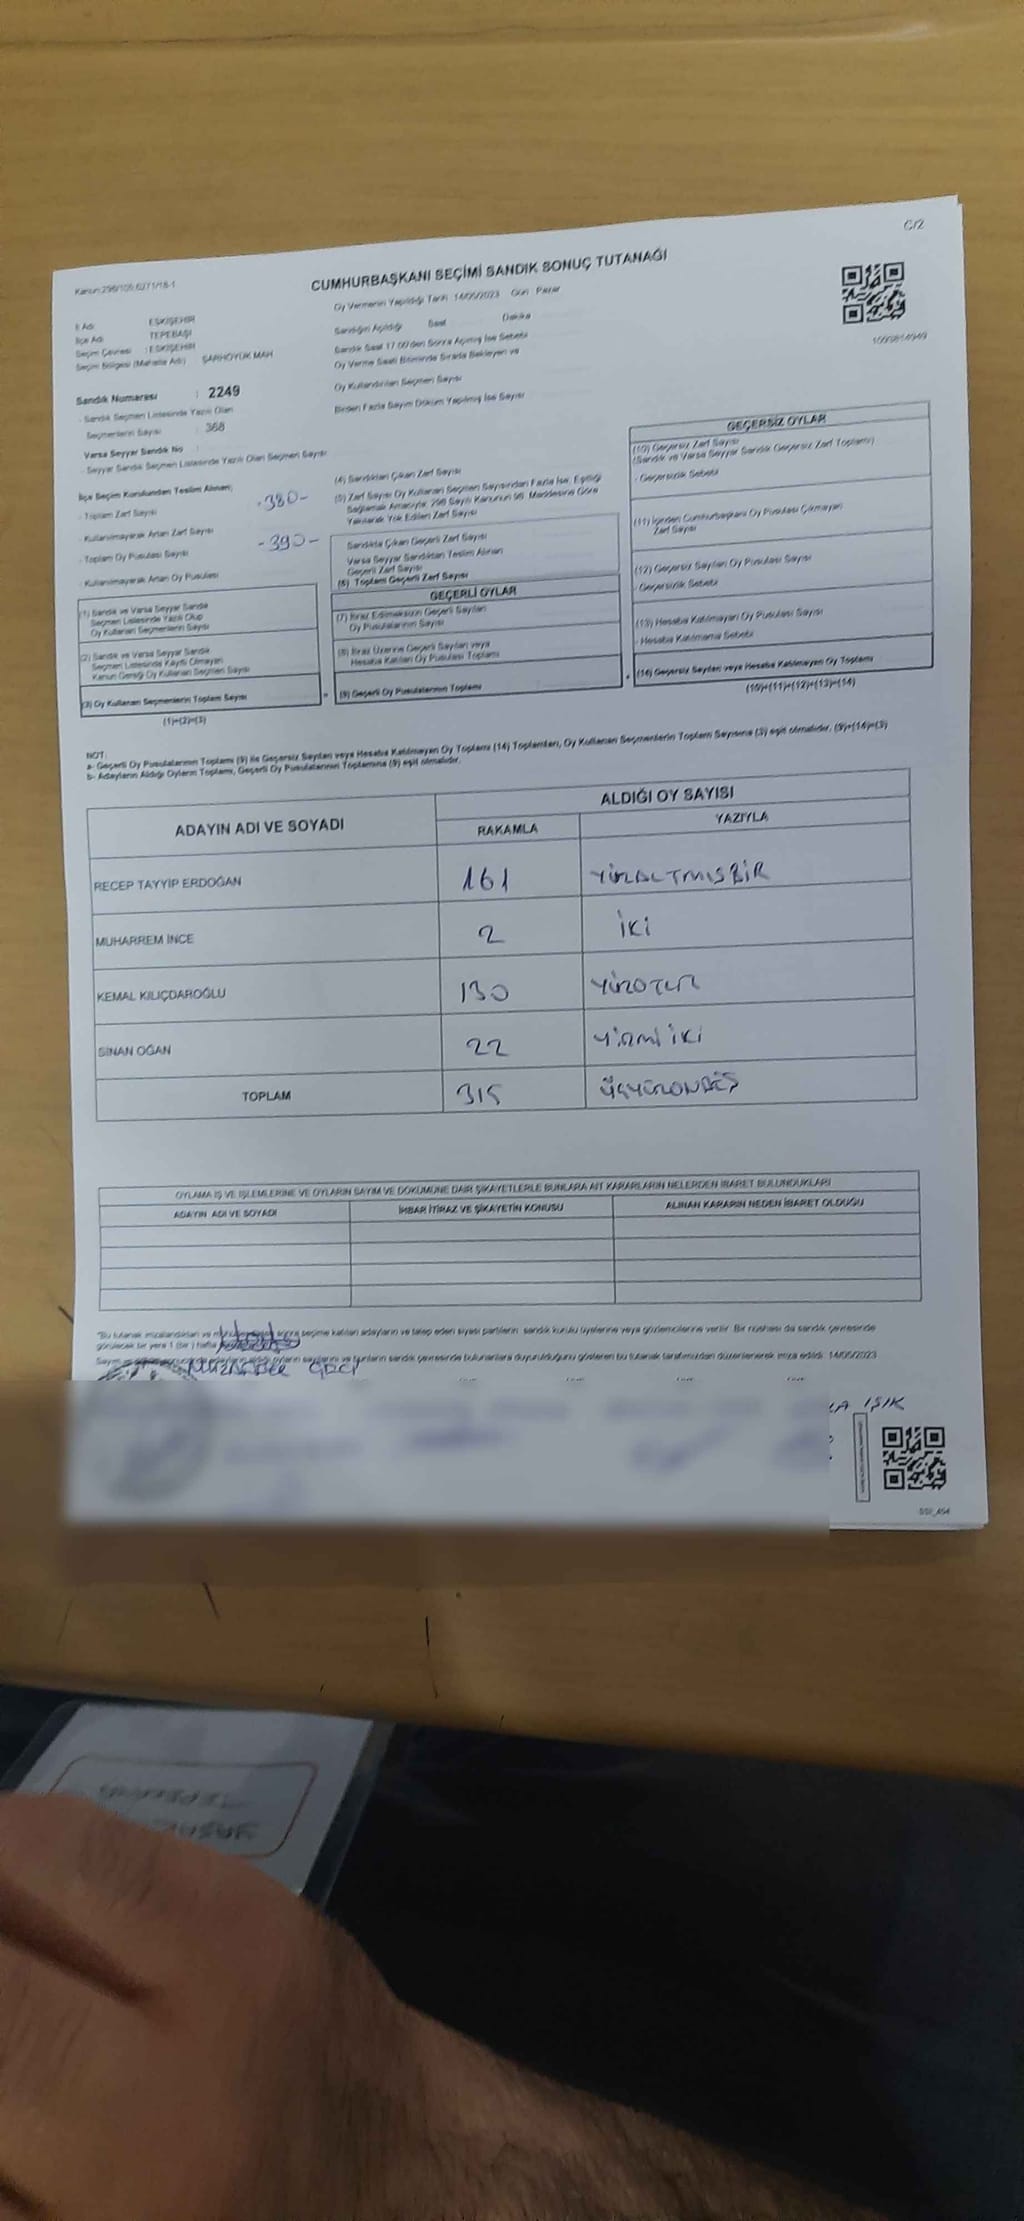 C/2
Kanun:298/105,6271/18-1
CUMHURBAŞKANI SEÇİMİ SANDIK SONUÇ TUTANAĞI
Oy Vermenin Yapıldığı Tarih 14/05/2023 Gün Pazar
İl Adı ESKİŞEHİR
İlçe Adı TEPEBAŞI
Seçim Çevresi : ESKİŞEHİR
Seçim Bölgesi (Mahalle Adı) ŞARHÖYÜK MAH
Sandığın Açıldığı Saat Dakika
Sandık Saat 17.00'den Sonra Açılmış İse Sebebi
Oy Verme Saati Bitiminde Sırada Bekleyen ve
Oy Kullandırılan Seçmen Sayısı
Birden Fazla Sayım Döküm Yapılmış İse Sayısı
Sandık Numarası : 2249
- Sandık Seçmen Listesinde Yazılı Olan
Seçmenlerin Sayısı : 368
Varsa Seyyar Sandık No :
- Seyyar Sandık Seçmen Listesinde Yazılı Olan Seçmen Sayısı
İlçe Seçim Kurulundan Teslim Alınan;
- Toplam Zarf Sayısı -380-
- Kullanılmayarak Artan Zarf Sayısı
- Toplam Oy Pusulası Sayısı -390-
- Kullanılmayarak Artan Oy Pusulası
(1) Sandık ve Varsa Seyyar Sandık
Seçmen Listesinde Yazılı Olup
Oy Kullanan Seçmenlerin Sayısı
(2) Sandık ve Varsa Seyyar Sandık
Seçmen Listesinde Kayıtlı Olmayan
Kanun Gereği Oy Kullanan Seçmen Sayısı
(3) Oy Kullanan Seçmenlerin Toplam Sayısı
(1)+(2)=(3)
(4) Sandıktan Çıkan Zarf Sayısı
(5) Zarf Sayısı Oy Kullanan Seçmen Sayısından Fazla İse, Eşitliği
Sağlamak Amacıyla, 298 Sayılı Kanunun 98. Maddesine Göre
Yakılarak Yok Edilen Zarf Sayısı
Sandıkta Çıkan Geçerli Zarf Sayısı
Varsa Seyyar Sandıktan Teslim Alınan
Geçerli Zarf Sayısı
(6) Toplam Geçerli Zarf Sayısı
GEÇERLİ OYLAR
(7) İtiraz Edilmeksizin Geçerli Sayılan
Oy Pusulalarının Sayısı
(8) İtiraz Üzerine Geçerli Sayılan veya
Hesaba Katılan Oy Pusulası Toplamı
= (9) Geçerli Oy Pusulalarının Toplamı
GEÇERSİZ OYLAR
(10) Geçersiz Zarf Sayısı
(Sandık ve Varsa Seyyar Sandık Geçersiz Zarf Toplamı)
- Geçersizlik Sebebi
(11) İçinden Cumhurbaşkanı Oy Pusulası Çıkmayan
Zarf Sayısı
(12) Geçersiz Sayılan Oy Pusulası Sayısı
- Geçersizlik Sebebi
(13) Hesaba Katılmayan Oy Pusulası Sayısı
- Hesaba Katılmama Sebebi
+ (14) Geçersiz Sayılan veya Hesaba Katılmayan Oy Toplamı
(10)+(11)+(12)+(13)=(14)
NOT:
a- Geçerli Oy Pusulalarının Toplamı (9) ile Geçersiz Sayılan veya Hesaba Katılmayan Oy Toplamı (14) Toplamları, Oy Kullanan Seçmenlerin Toplam Sayısına (3) eşit olmalıdır. (9)+(14)=(3)
b- Adayların Aldığı Oyların Toplamı, Geçerli Oy Pusulalarının Toplamına (9) eşit olmalıdır.
ADAYIN ADI VE SOYADI
ALDIĞI OY SAYISI
RAKAMLA YAZIYLA
RECEP TAYYİP ERDOĞAN 161 YÜZALTMIŞBİR
MUHARREM İNCE 2 İKİ
KEMAL KILIÇDAROĞLU 130 YÜZOTUZ
SİNAN OĞAN 22 YİRMİ İKİ
TOPLAM 315 ÜÇYÜZONBEŞ
OYLAMA İŞ VE İŞLEMLERİNE VE OYLARIN SAYIM VE DÖKÜMÜNE DAİR ŞİKAYETLERLE BUNLARA AİT KARARLARIN NELERDEN İBARET BULUNDUKLARI
ADAYIN ADI VE SOYADI İHBAR İTİRAZ VE ŞİKAYETİN KONUSU ALINAN KARARIN NEDEN İBARET OLDUĞU
"Bu tutanak imzalandıktan ve seçime katılan adayların ve talep eden siyasi partilerin sandık kurulu üyelerine veya gözlemcilerine verilir. Bir nüshası da sandık çevresinde
görülecek bir yere 1 (bir) hafta
oyların sayılarını ve bunların sandık çevresinde bulunanlara duyurulduğunu gösteren bu tutanak tarafımızdan düzenlenerek imza edildi. 14/05/2023
IŞIK